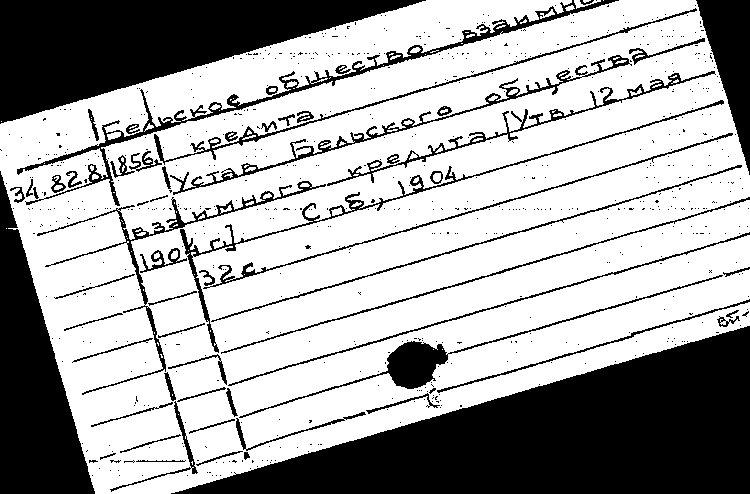 Бельское общество взаимно
кредита.
34.82.8.1856.
Устав Бельского общества
взаимного кредита. [Утв. 12 мая
1904 г.]. Спб., 1904.
32 с.
вй-